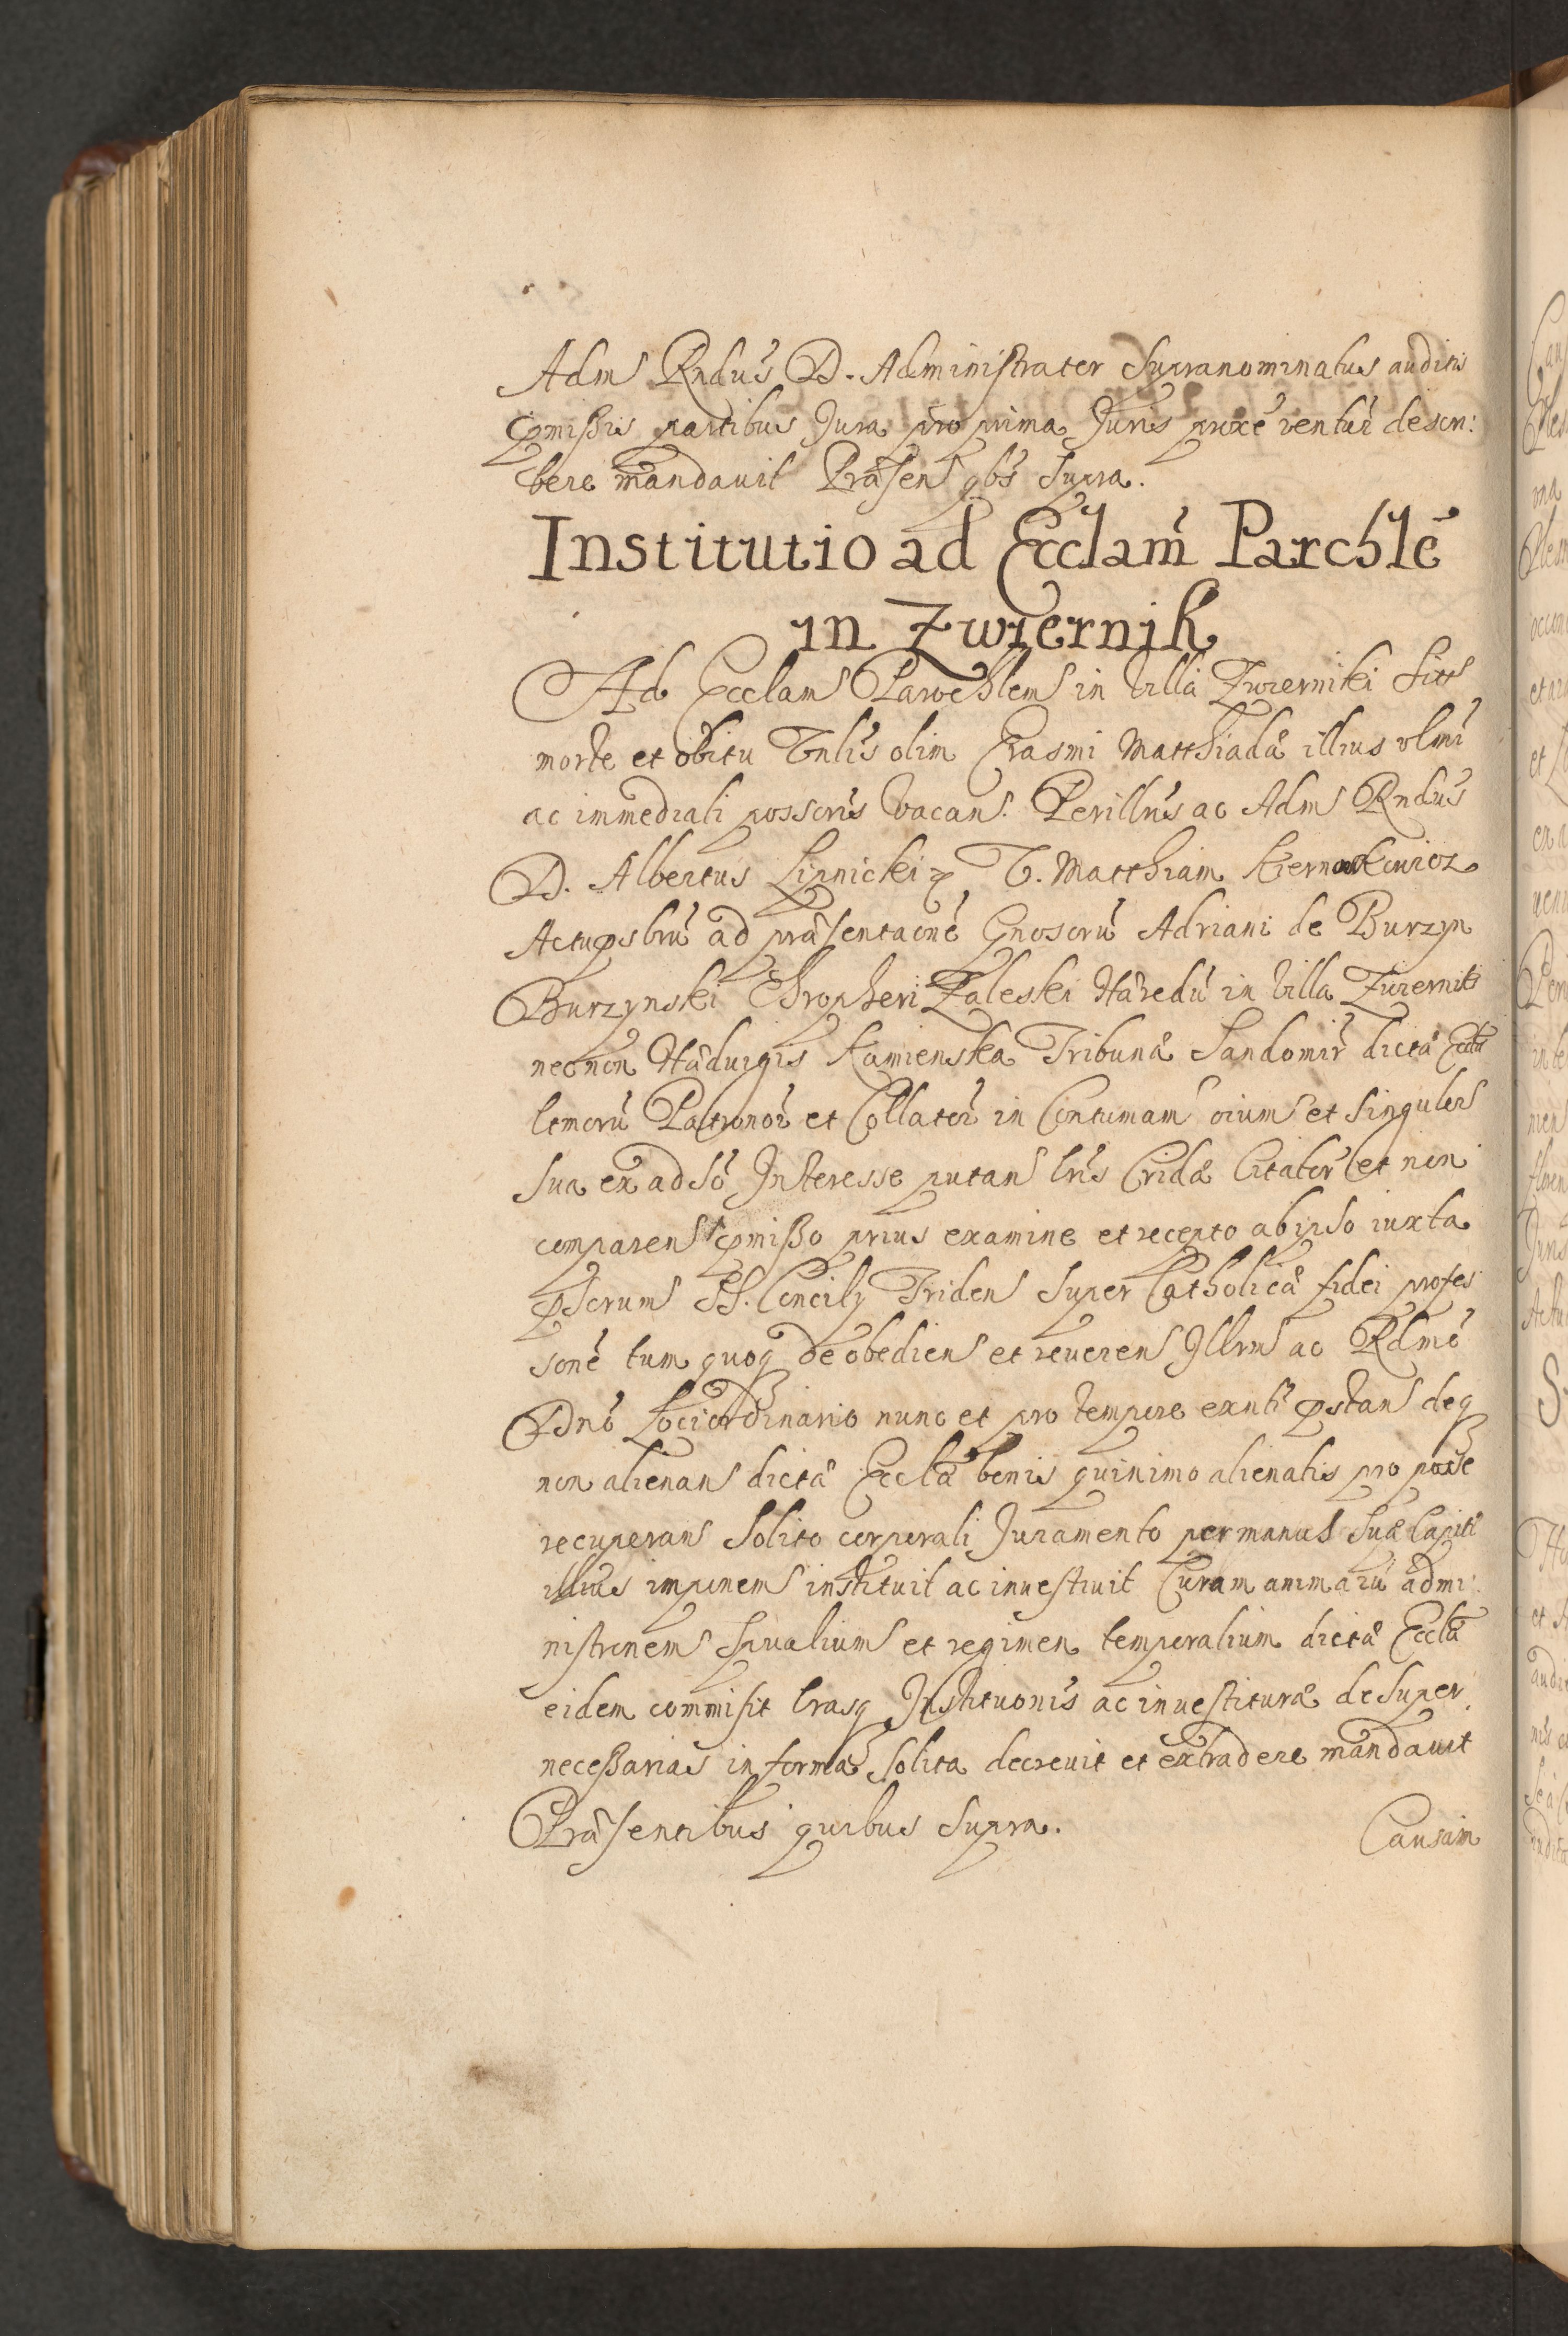 Adm Rndus D. Administrator supranominatus auditis
pmissis partibus Jura pro prima Juris proxe ventur descri:
bere mandavit Præsen qbs supra.
Institutio ad Ecclam Parchle
in Zwiernik
Ad Ecclam Parochlem in villa Zwierniki sitt
morte et obitu Vnlis olim Erasmi Matthiadæ illius vlmi
ac immediati possoris vacan. Perillris ac Adm Rndus
D. Albertus Lipnicki V. Matthiam
Actu psbru ad præsentaone Gnosoru Adriani de Burzyn
Burzynski Chropheri Zaleski Hæredu in villa Zwierniki
necnon Hæduigis Kamienska Tribunæ Sandomir dictæ Ecclæ
ltmoru Patronor et Collator in Contumam oium et singulor
sua ex adso Interesse putan lris Cridæ Citator et non
comparen pmisso prius examine et recepto ab ipso iuxta
pscrum SS. Concily Triden super Catholicæ fidei profes
sone tum quoq de obedien et reueren Illrm ac Rdmo
Dno Loci ordinario nunc et pro tempore exnti pstan deq
non alienan dictæ Ecclæ bonis quinimo alienatis pro posse
recuperan solito corporali Juramento per manus suæ Capiti
illius imponem instituit ac inuestiuit Curam animaru admi:
nistronem spualium et regimen temporalium dictæ Ecclæ
eidem commisit lrasq Institutionis ac inuestituræ desuper
necessarias in forma solita decreuit et extradere mandauit
Præsentibus quibus supra.
Causam